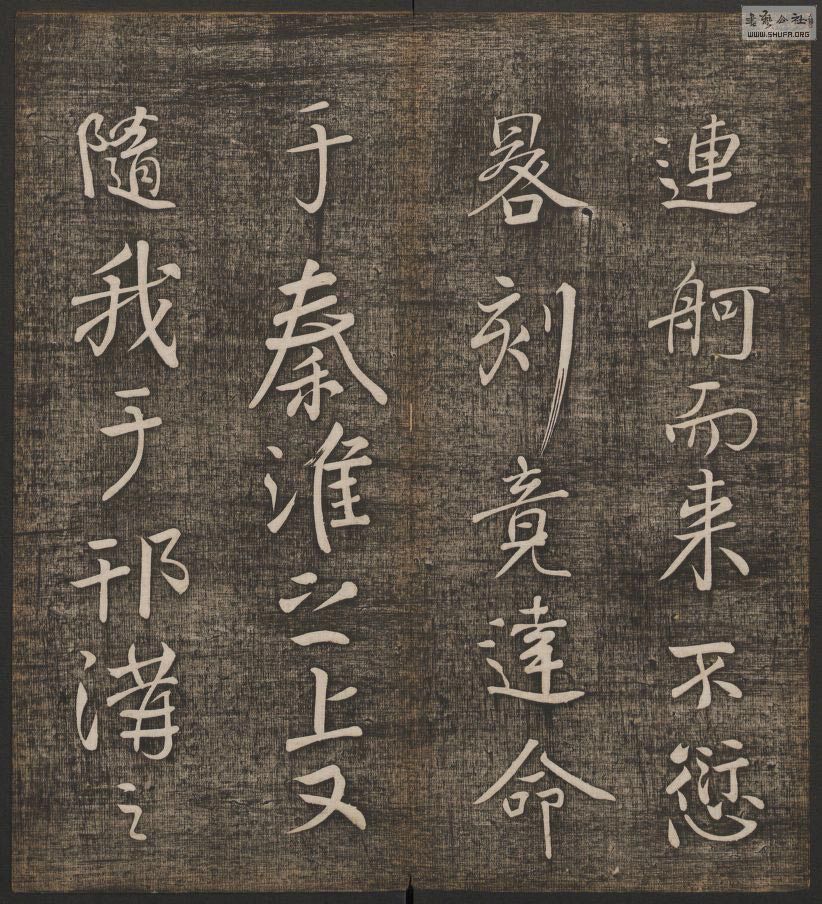 連舸而来不愆
晷刻竟達命
于秦淮之上又
隨我于邗溝之
書藝公社
WWW.SHUFA.ORG